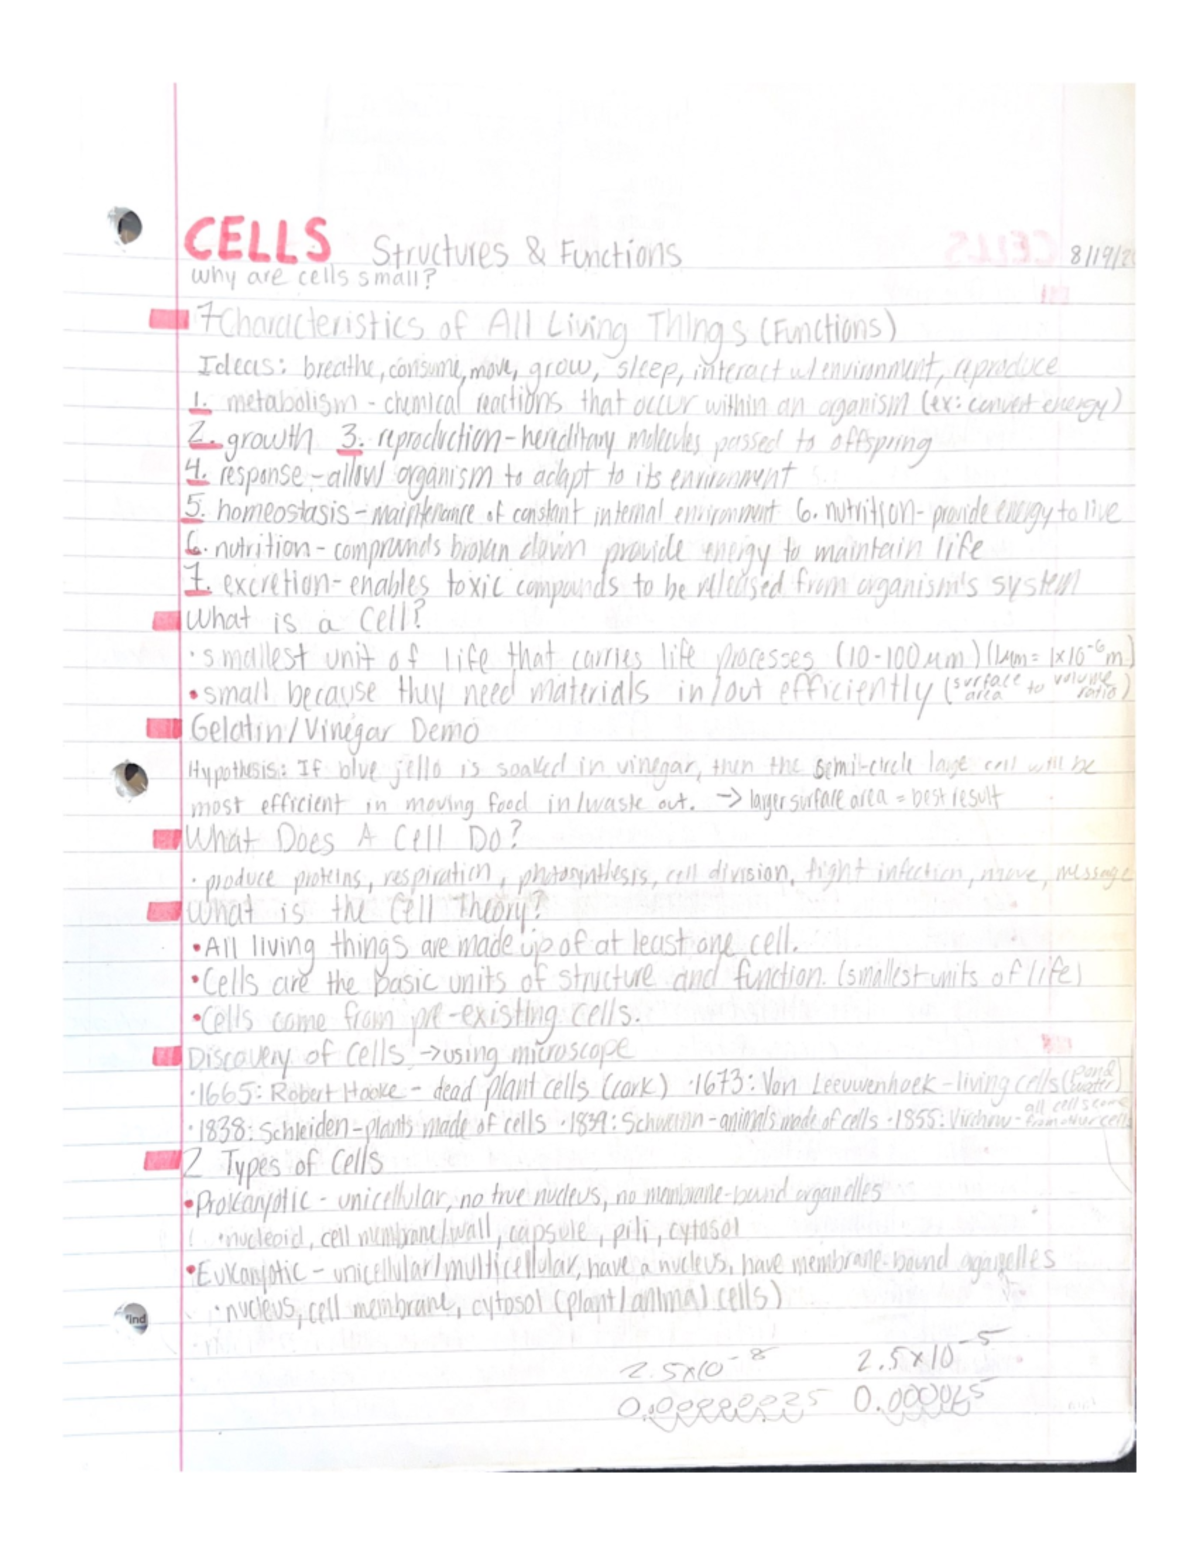 CELLS Structures & Functions 8/19/2
why are cells small?
7 Characteristics of All Living Things (Functions)
Ideas: breathe, consume, move, grow, sleep, interact w/ environment, reproduce
1. metabolism - chemical reactions that occur within an organism (ex: convert energy)
2. growth 3. reproduction - hereditary molecules passed to offspring
4. response - allow organism to adapt to its environment
5. homeostasis - maintenance of constant internal environment 6. nutrition - provide energy to live
6. nutrition - compounds broken down provide energy to maintain life
7. excretion - enables toxic compounds to be released from organism's system
What is a Cell?
· smallest unit of life that carries life processes (10-100 μm) (1μm = 1x10⁻⁶m)
• small because they need materials in/out efficiently (surface area to volume ratio)
Gelatin/Vinegar Demo
Hypothesis: If blue jello is soaked in vinegar, then the semi-circle large cell will be
most efficient in moving food in/waste out. → larger surface area = best result
What Does A Cell Do?
· produce proteins, respiration, photosynthesis, cell division, fight infection, move, message
What is the Cell Theory?
• All living things are made up of at least one cell.
• Cells are the basic units of structure and function. (smallest units of life)
• Cells come from pre-existing cells.
Discovery of Cells → using microscope
· 1665: Robert Hooke - dead plant cells (cork) · 1673: Van Leeuwenhoek - living cells (pond water)
· 1838: Schleiden - plants made of cells · 1839: Schwann - animals made of cells · 1855: Virchow - all cells come from other cells
2 Types of Cells
• Prokaryotic - unicellular, no true nucleus, no membrane-bound organelles
· nucleoid, cell membrane/wall, capsule, pili, cytosol
• Eukaryotic - unicellular/multicellular, have a nucleus, have membrane-bound organelles
· nucleus, cell membrane, cytosol (plant/animal cells)
2.5x10⁻⁸ 2.5x10⁻⁵
0.000000025